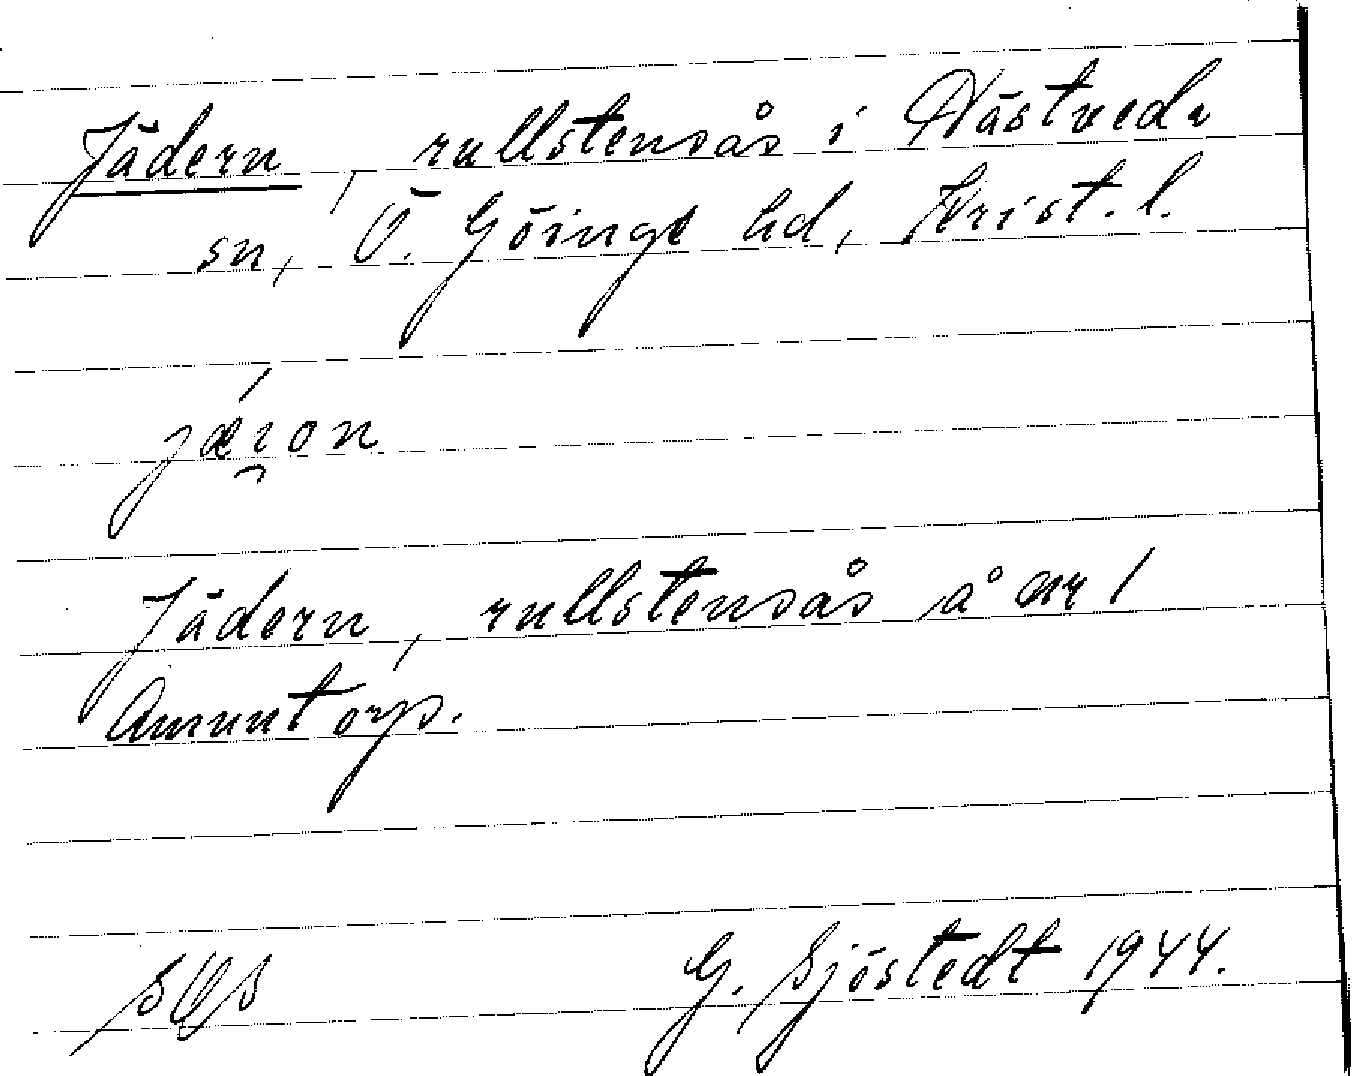 Jädern, rullstensås i Nästveds
sn, Ö. Göinge hd, Krist. l.
Jädern, rullstensås å nr 1
Amuntorp.
G. Sjöstedt 1944.